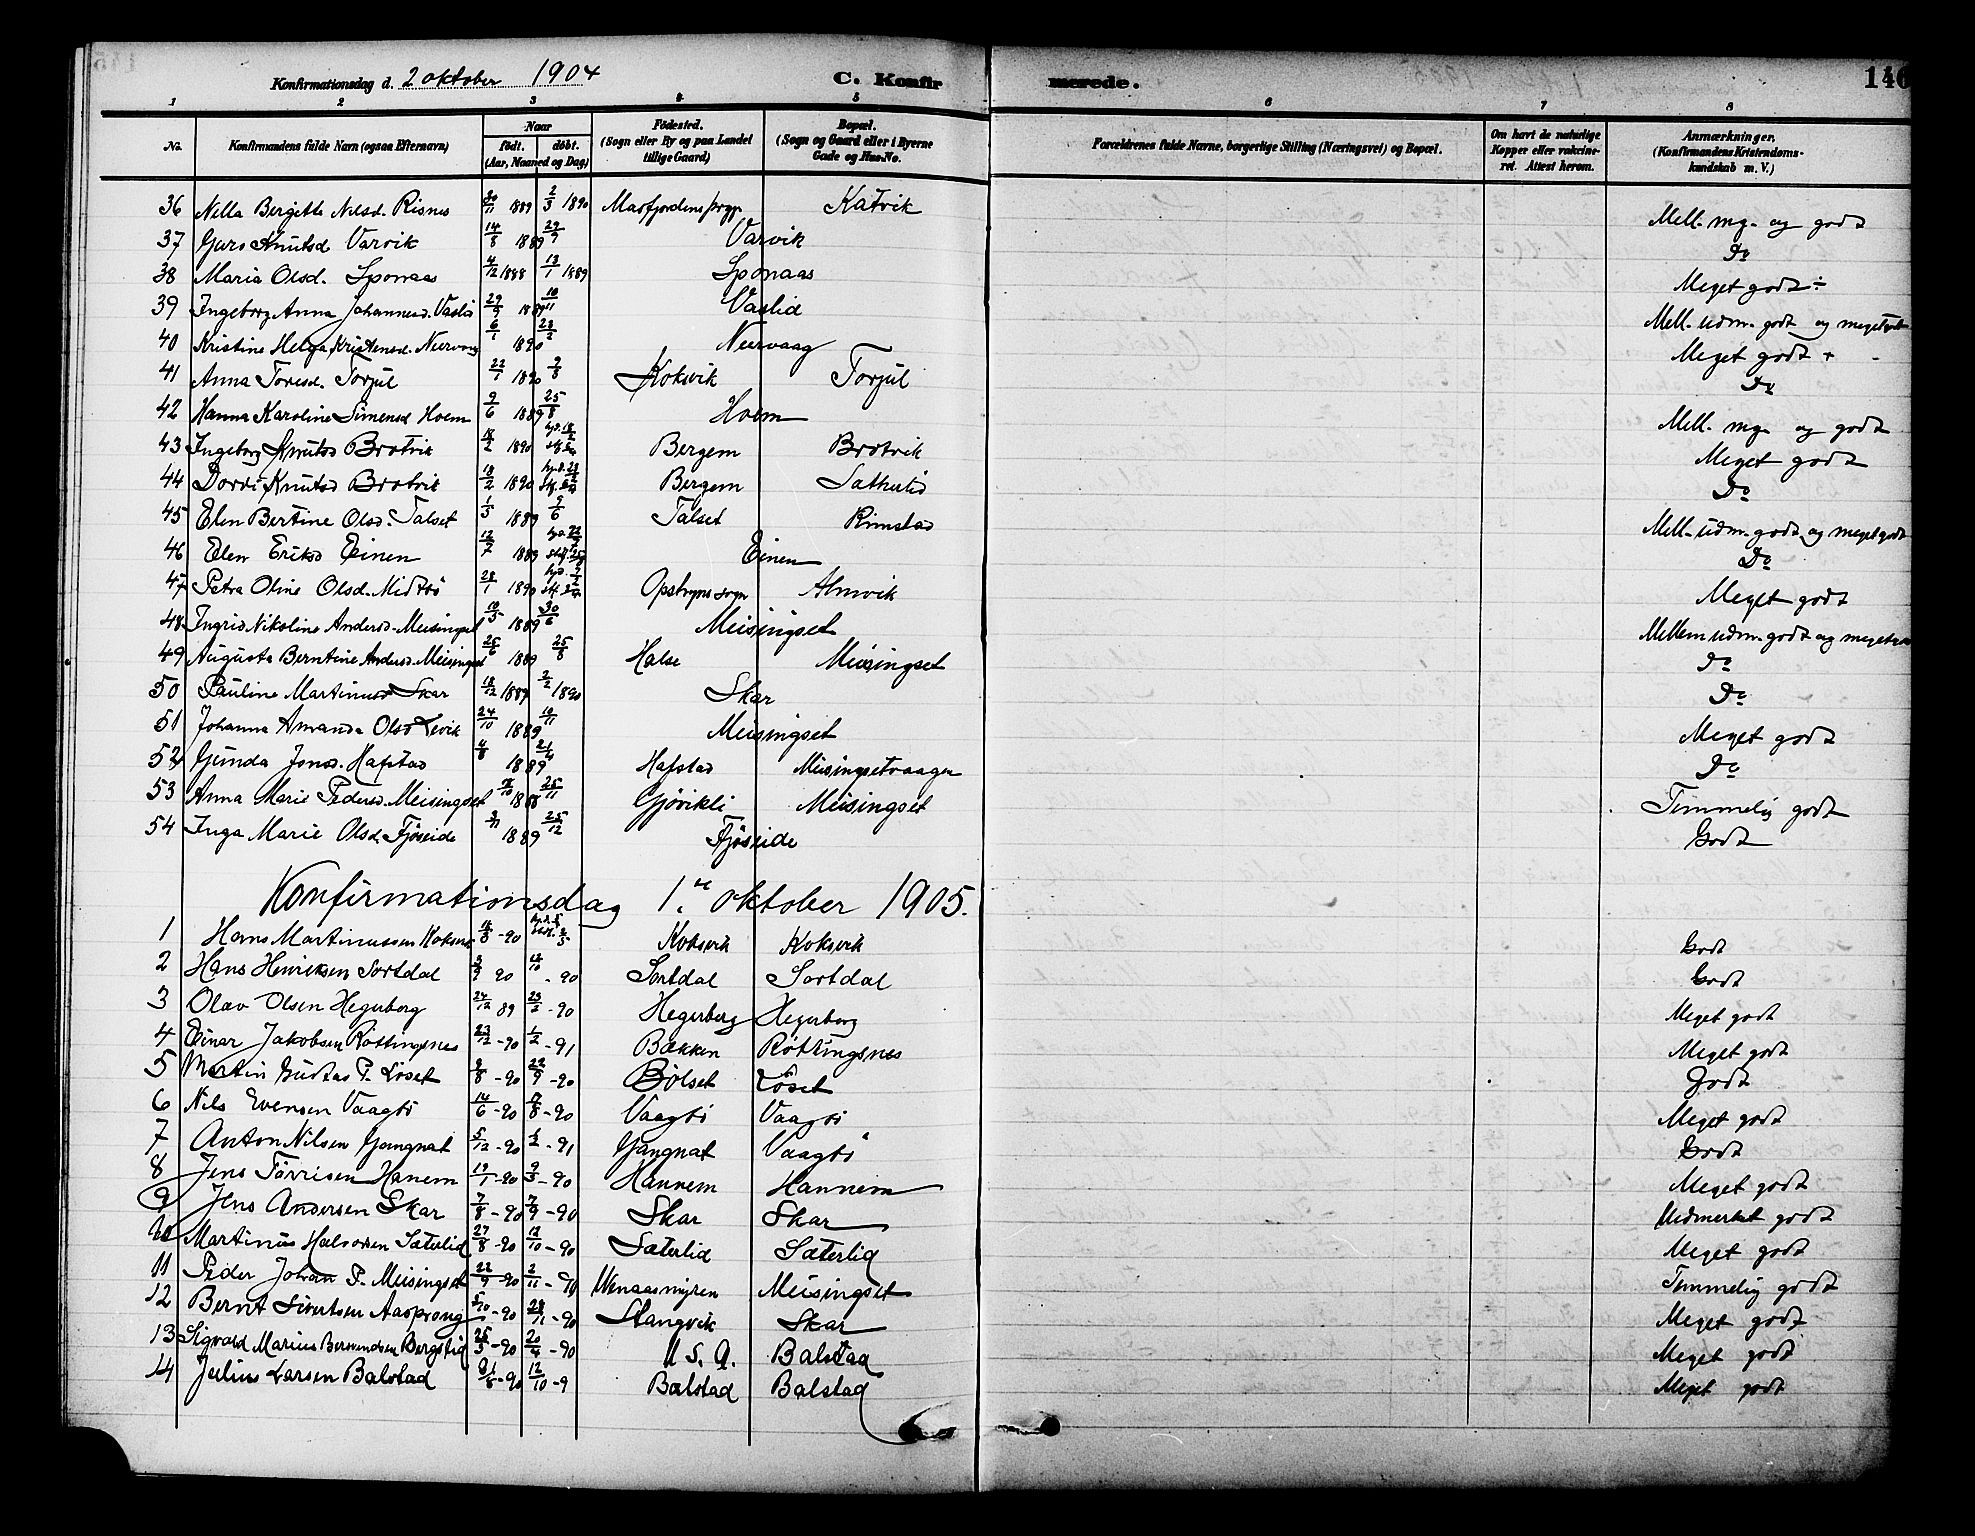 Konfirmationsdag d. 2 oktober 1904 C. Konfir merede. 146
1 2 3 4 5 6 7 8
No. Konfirmandens fulde Navn (ogsaa Efternavn) Naar født. døbt. (Aar, Maaned og Dag) Fødested. (Sogn eller By og paa Landet tillige Gaard) Bopæl. (Sogn og Gaard eller i Byerne Gade og Hus-No. Forældrenes fulde Navne, borgerlige Stilling (Næringsvei) og Bopæl. Om havt de naturlige Kopper eller vakcineret. Attest herom. Anmærkninger. (Konfirmandens Kristendomskundskab m. V.)
36 Nella Bergitte Nilsd. Risnes 30/11 1889 2/3 1890 Masfjordens Katvik Mell. mg. og godt
37 Guro Knutsd Varvik 14/8 1889 29/9 Varvik Do
38 Maria Olsd. Sponaas 4/12 1888 13/1 1889 Sponaas Meget godt ÷
39 Ingeborg Anna Johannesd. Vaslid 29/9 1889 10/11 Vaslid Mell. udm. godt og meget godt
40 Kristine Helga Kristensd. Neervaag 6/1 1890 23/2 Neervaag Meget godt +
41 Anna Toresd. Torjul 22/1 1890 9/8 Koksvik Torjul Do
42 Hanna Karoline Simensd Hoem 9/6 1889 25/8 Hoem Mell. mg og godt
43 Ingeborg Knutsd Brotvik 18/2 1890 Bergem Brotvik Meget godt
44 Dordi Knutsd Brotvik 18/2 1890 Bergem Sæterlid Do
45 Elen Bertine Olsd. Talset 1889 9/6 Talset Rimstad Mell. udm. godt og meget godt
46 Elen Eriksd Einen 12/7 1889 Einen Do
47 Petra Oline Olsd. Midtbö 28/1 1890 Opstryns sogn Almvik Meget godt
48 Ingrid Nikoline Andersd. Meisingset 10/5 1889 30/6 Meisingset Mellem udm. godt og meget godt
49 Augusta Berntine Andersd. Meisingset 25/6 1889 25/8 Halse Meisingset Do
50 Pauline Martinusd Skar 18/12 1889 2/2 1890 Skar Do
51 Johanna Amanda Olsd Levik 24/10 1889 10/11 Meisingset Meget godt
52 Gunda Jonsd. Hafstad 4/8 1889 Hafstad Meisingsetvaagen Do
53 Anna Marie Pedersd. Meisingset 1888 25/11 Gjøvikli Meisingset Temmelig godt
54 Inga Marie Olsd. Fjöseide 1889 25/12 Fjöseide Godt
Konfirmationsdag 1. oktober 1905.
1 Hans Martinussen Koksvik -90 Koksvik Koksvik Godt
2 Hans Henriksen Sortdal 90 -90 Sortdal Sortdal Godt
3 Olav Olsen Hegerberg 27/12 89 23/2 -90 Hegerberg Hegerberg Meget godt
4 Einar Jakobsen Röttingsnes 23/12 -90 1/2 -91 Bækken Røttingsnes Meget godt
5 Martin Gustav P. Löset -90 22/9 -90 Bölset Löset Godt
6 Nils Evensen Vaagbö 14/6 -90 -90 Vaagbö Vaagbö Meget godt
7 Anton Nilsen Gangnat 5/12 -90 1/2 -91 Gangnat Vaagbö Godt
8 Jens Törrisen Hanem 19/1 -90 9/3 -90 Hannem Hannem Meget godt
9 Jens Andersen Skar 7/8 -90 7/9 -90 Skar Skar Udmerket godt
10 Martinus Halvorsen Sæterlid 27/8 -90 12/10 -90 Sæterlid Sæterlid Meget godt
11 Peder Johan P. Meisingset 22/9 -90 2/11 -90 Wenaasmyren Meisingset Temmelig godt
12 Bernt Sivertsen Aasprong 5/10 -90 23/11 -90 Stangvik Skar Meget godt
13 Sigvald Marius Bernundsen Bergslid 25/3 -90 20/4 -90 U. S. A. Balstad Meget godt
14 Julius Larsen Balstad -90 12/10 -9 Balstad Balstad Meget godt